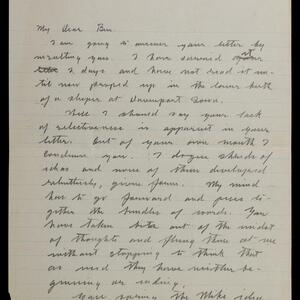 My Dear Ben.
I am going to answer your letter by
insulting you. I have carried it
2 days and have not read it un-
til now propped up in the lower berth
of a sleeper at Davenport Iowa.
Here I should say your lack
of selectiveness is apparent in your
letter. Out of your own mouth I
condemn you. I dogie shads of
ideas and none of them developed
relentlessly, given form. My mind
has to go forward and piece to-
gether the bundles of words. You
have taken bites out of the midst
of thoughts and flung them at me
without stopping to think that
as used they have neither be-
ginning or ending.
spring the